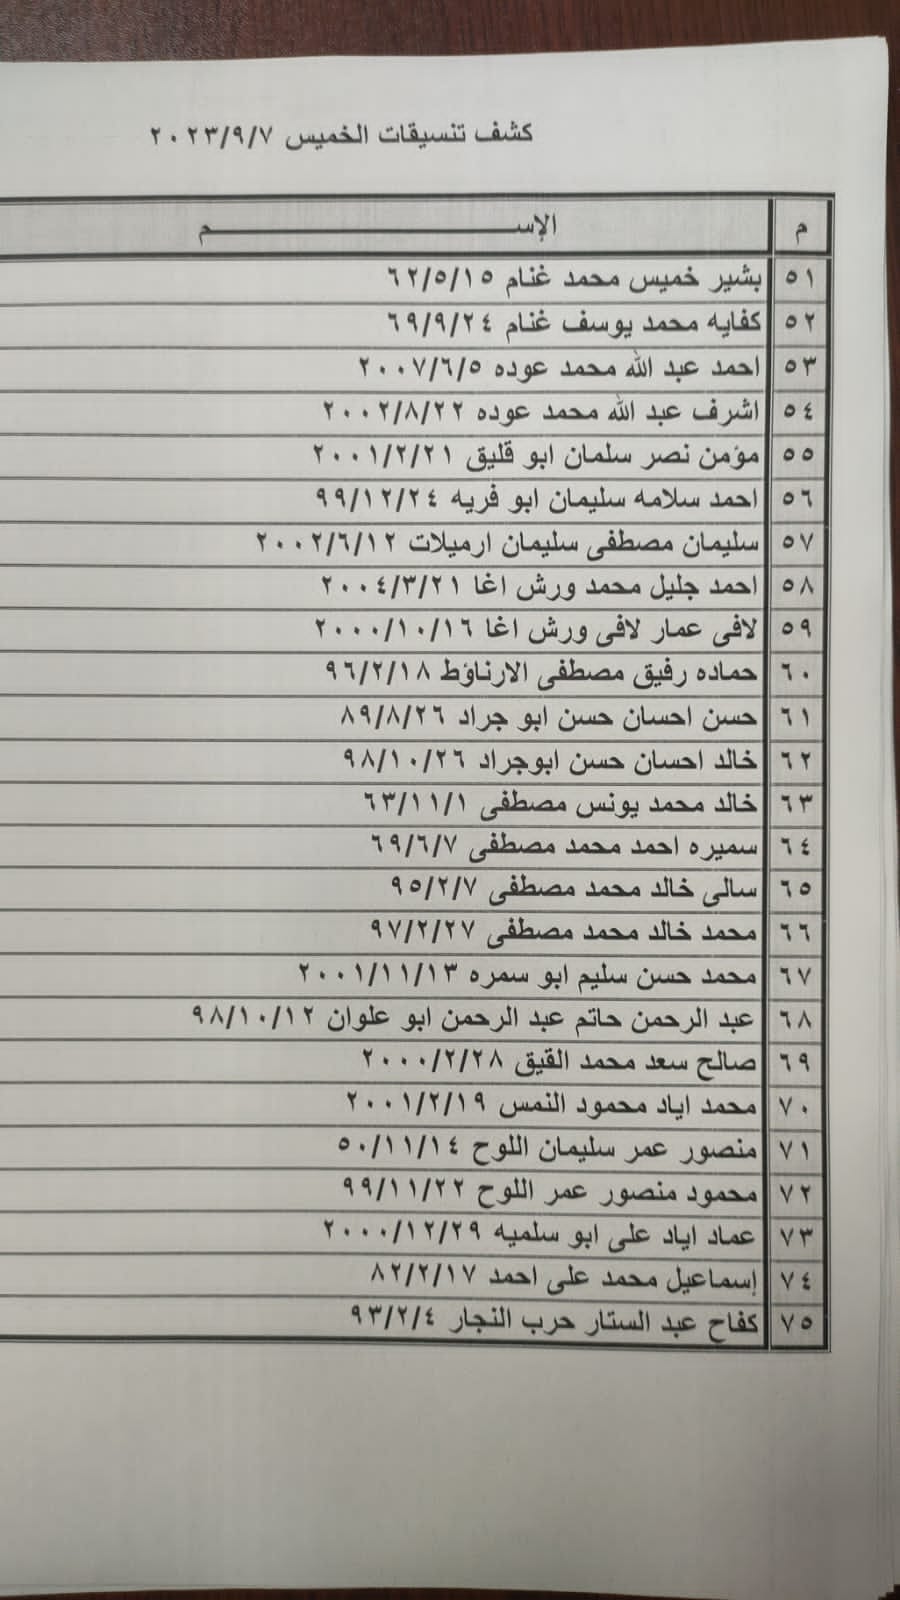 كشف تنسيقات الخميس ٢٠٢٣/٩/٧
م الإســـــــــــــــــــــــم
٥١ بشير خميس محمد غنام ٦٢/٥/١٥
٥٢ كفايه محمد يوسف غنام ٦٩/٩/٢٤
٥٣ احمد عبد الله محمد عوده ٢٠٠٧/٦/٥
٥٤ اشرف عبد الله محمد عوده ٢٠٠٢/٨/٢٢
٥٥ مؤمن نصر سلمان ابو قليق ٢٠٠١/٢/٢١
٥٦ احمد سلامه سليمان ابو فريه ٩٩/١٢/٢٤
٥٧ سليمان مصطفى سليمان ارميلات ٢٠٠٢/٦/١٢
٥٨ احمد جليل محمد ورش اغا ٢٠٠٤/٣/٢١
٥٩ لافى عمار لافى ورش اغا ٢٠٠٠/١٠/١٦
٦٠ حماده رفيق مصطفى الارناؤط ٩٦/٢/١٨
٦١ حسن احسان حسن ابو جراد ٨٩/٨/٢٦
٦٢ خالد احسان حسن ابوجراد ٩٨/١٠/٢٦
٦٣ خالد محمد يونس مصطفى ٦٣/١١/١
٦٤ سميره احمد محمد مصطفى ٦٩/٦/٧
٦٥ سالى خالد محمد مصطفى ٩٥/٢/٧
٦٦ محمد خالد محمد مصطفى ٩٧/٢/٢٧
٦٧ محمد حسن سليم ابو سمره ٢٠٠١/١١/١٣
٦٨ عبد الرحمن حاتم عبد الرحمن ابو علوان ٩٨/١٠/١٢
٦٩ صالح سعد محمد القيق ٢٠٠٠/٢/٢٨
٧٠ محمد اياد محمود النمس ٢٠٠١/٢/١٩
٧١ منصور عمر سليمان اللوح ٥٠/١١/١٤
٧٢ محمود منصور عمر اللوح ٩٩/١١/٢٢
٧٣ عماد اياد على ابو سلميه ٢٠٠٠/١٢/٢٩
٧٤ إسماعيل محمد على احمد ٨٢/٢/١٧
٧٥ كفاح عبد الستار حرب النجار ٩٣/٢/٤